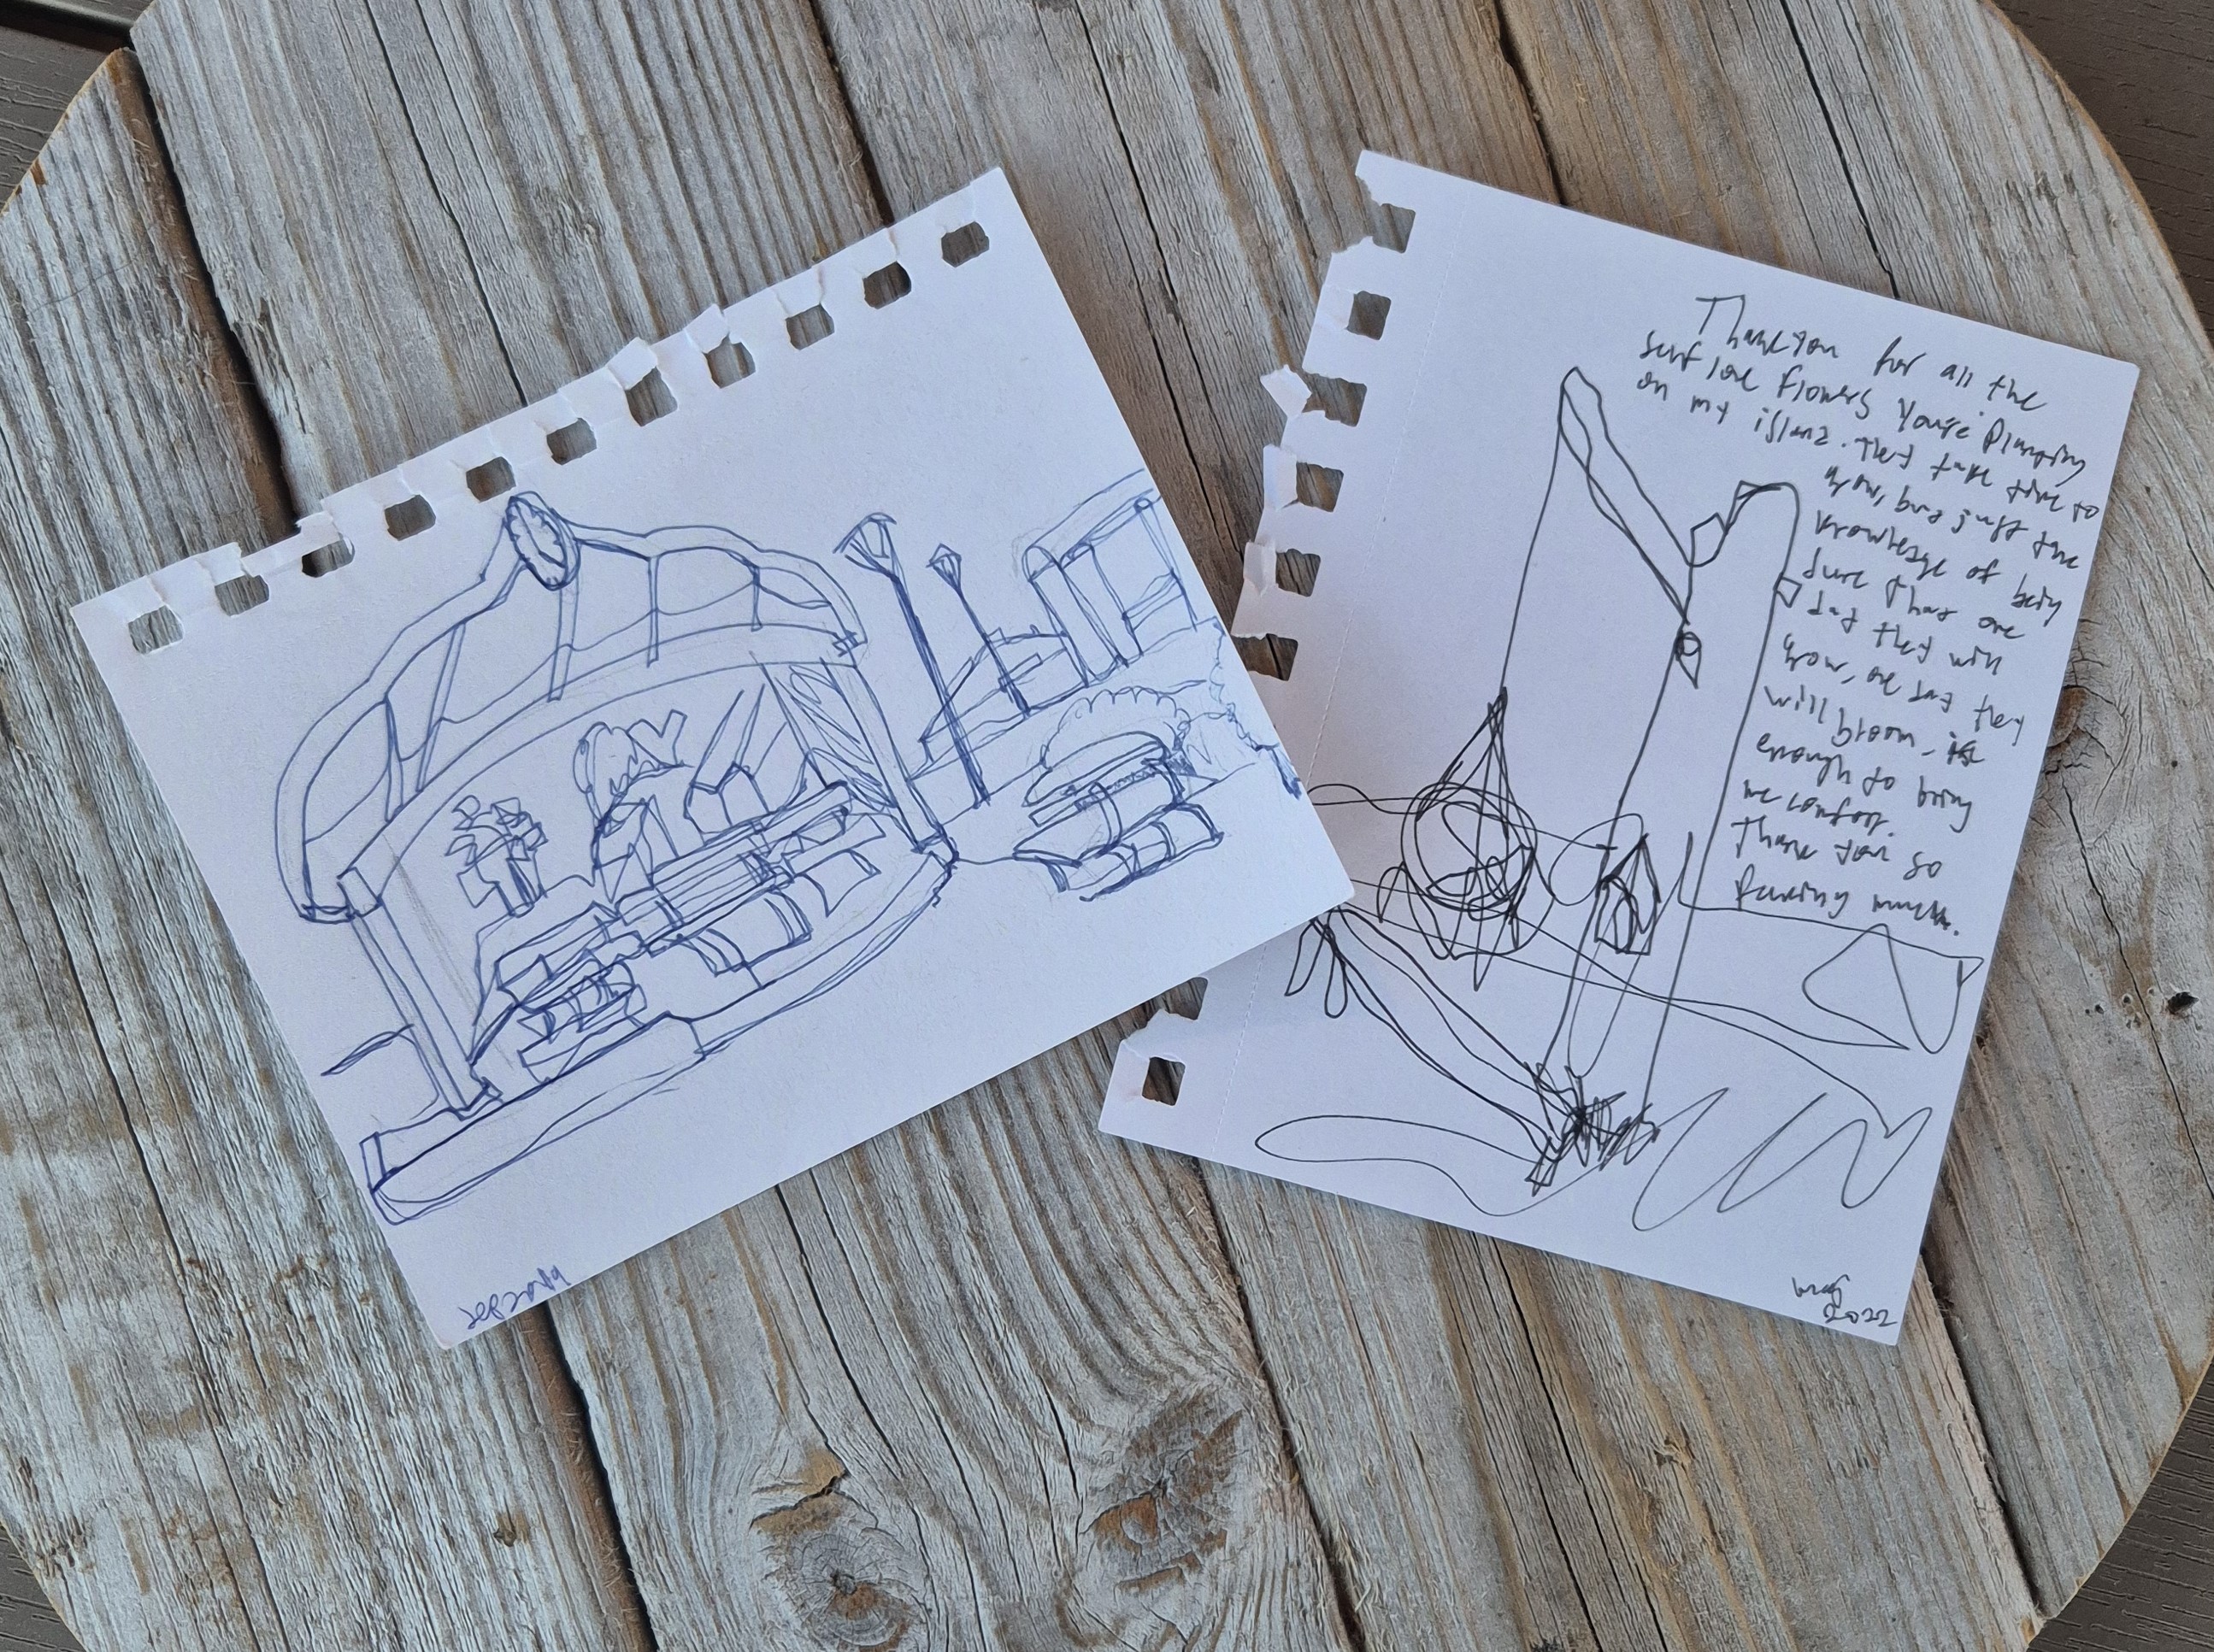 Thank you for all the
self love flowers you're planting
on my island. They take time to
grow, but just the
knowledge of being
sure that one
day they will
grow, one day they
will bloom, is
enough to bring
me comfort.
Thank you so
fucking much.
2022